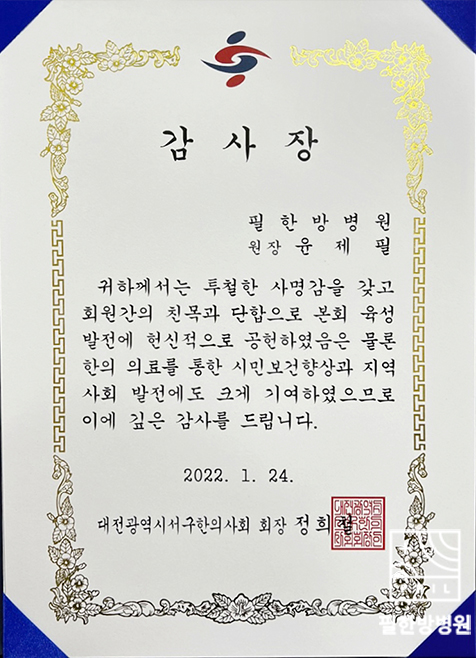 감 사 장
필 한 방 병 원
원장 윤 제 필
귀하께서는 투철한 사명감을 갖고
회원간의 친목과 단합으로 본회 육성
발전에 헌신적으로 공헌하였음은 물론
한의 의료를 통한 시민보건향상과 지역
사회 발전에도 크게 기여하였으므로
이에 깊은 감사를 드립니다.
2022. 1. 24.
대전광역시서구한의사회 회장 정희
필한방병원